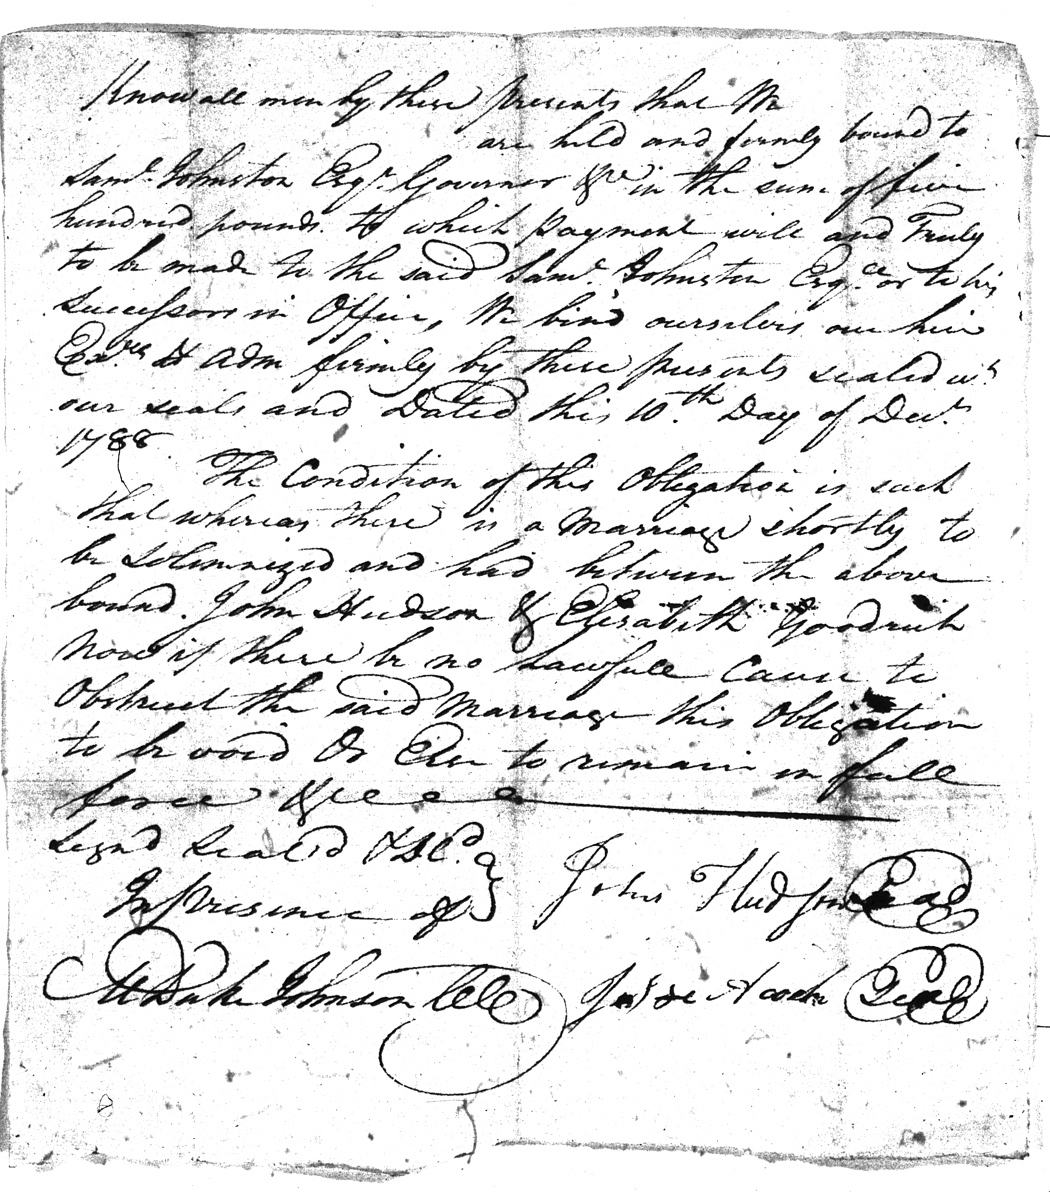 Know all men by these presents that We
are held and firmly bound to
Saml. Johnston Esqr. Governor &c in the sum of five
hundred pounds. To which payment will and Truly
to be made to the said Saml. Johnston Esqr. or to his
Successors in Office, We bind ourselves our heir
Exrs. & Adm firmly by these presents sealed wth
our seals and Dated this 10th. Day of Decr.
1788.
The Condition of this Obligation is such
that whereas there is a Marriage shortly to
be solemnized and had between the above
bound. John Hudson & Elizabeth Goodrich
Now if there be no Lawfull Cause to
Obstruct the said Marriage this Obligation
to be void Or Else to remain in full
force &c
Signd Sealed & Dd.
In presence of
John Hudson Seal
M Duke Johnson
Seal